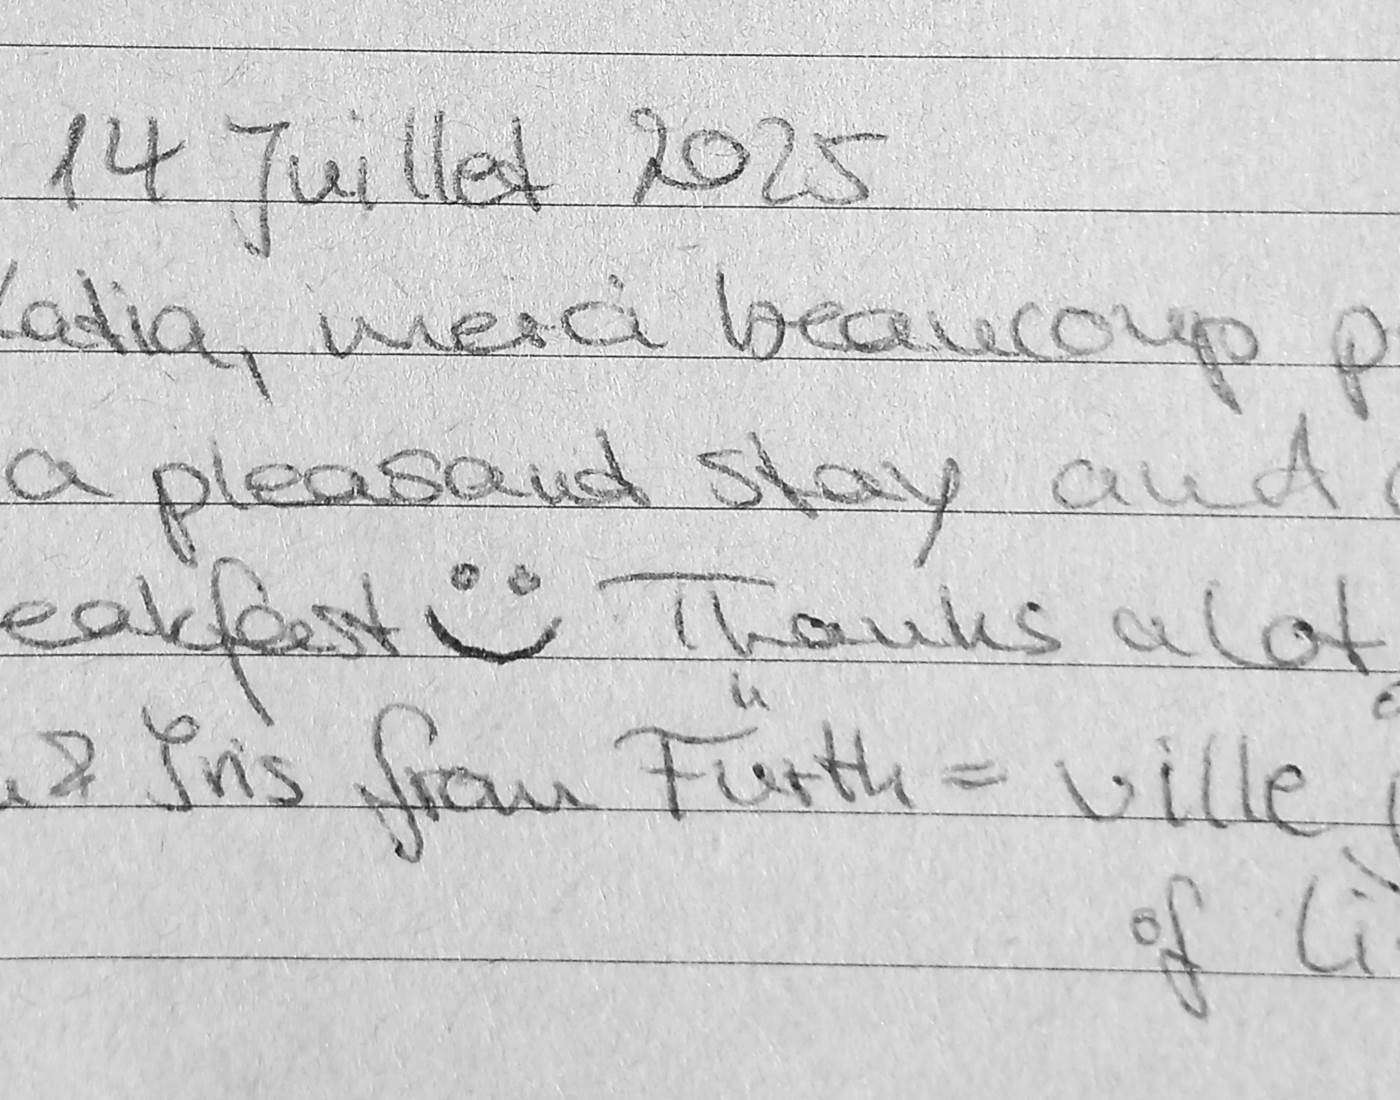 14 Juillet 2025
Katia, merci beaucoup p
a pleasand stay and
eakfast :) Thanks a lot
& Iris from Fürth = ville
of Li